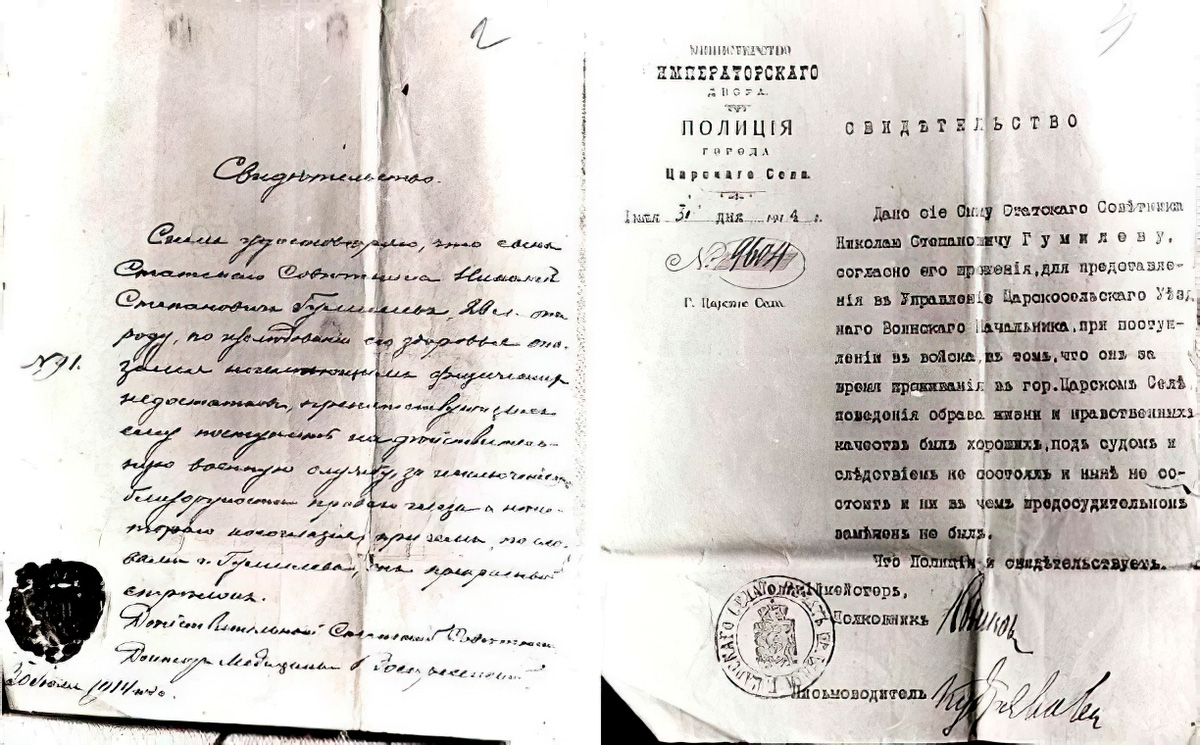 2
Свидѣтельство.
Симъ удостовѣряю, что сынъ
Статскаго Совѣтника Николай
Степановичъ Гумилевъ 28 л. отъ
роду, по изслѣдованіи его здоровья ока-
№ 91.
зался неимѣющимъ физическихъ
недостатковъ, препятствующихъ
ему поступить на дѣйствитель-
ную военную службу, за исключеніемъ
близорукости праваго глаза и нѣко-
тораго косоглазія, при чемъ, по сло-
вамъ г. Гумилева, онъ прекрасный
стрѣлокъ.
Дѣйствительный Статскій Совѣтникъ
Докторъ Медицины
30 Іюля 1914 года.
МИНИСТЕРСТВО
ИМПЕРАТОРСКАГО
ДВОРА.
ПОЛИЦІЯ
ГОРОДА
Царскаго Села.
Іюля 31 дня 1914 г.
№ 9604
Г. Царское Село.
СВИДѢТЕЛЬСТВО
Дано сіе Сыну Статскаго Совѣтника
Николаю Степановичу Гумилеву,
согласно его прошенія, для представле-
нія въ Управленіе Царскосельскаго Уѣзд
наго Воинскаго Начальника, при поступ-
леніи въ войска, въ томъ, что онъ за
время проживанія въ гор. Царскомъ Селѣ
поведенія образа жизни и нравственныхъ
качествъ былъ хорошихъ, подъ судомъ и
слѣдствіемъ не состоялъ и нынѣ не со-
стоитъ и ни въ чемъ предосудительномъ
замѣченъ не былъ.
Что Полиція и свидѣтельствуетъ.
Полковникъ
Письмоводитель